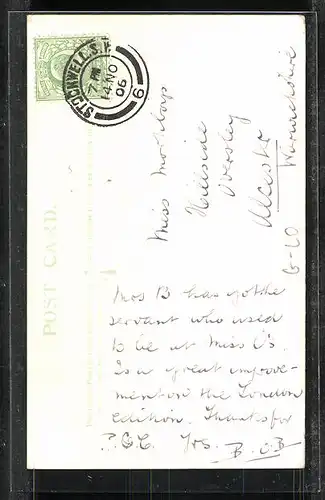 STOCKWELL.S.
7 PM
14 NO
06
9
POST CARD.
Miss
Hillside
Oversley
Alcester
Warwickshire
Mrs B has got the
servant who used
to be at Miss C's.
Is a great improve-
ment on the London
edition. Thanks for
P.C. Yrs. B.